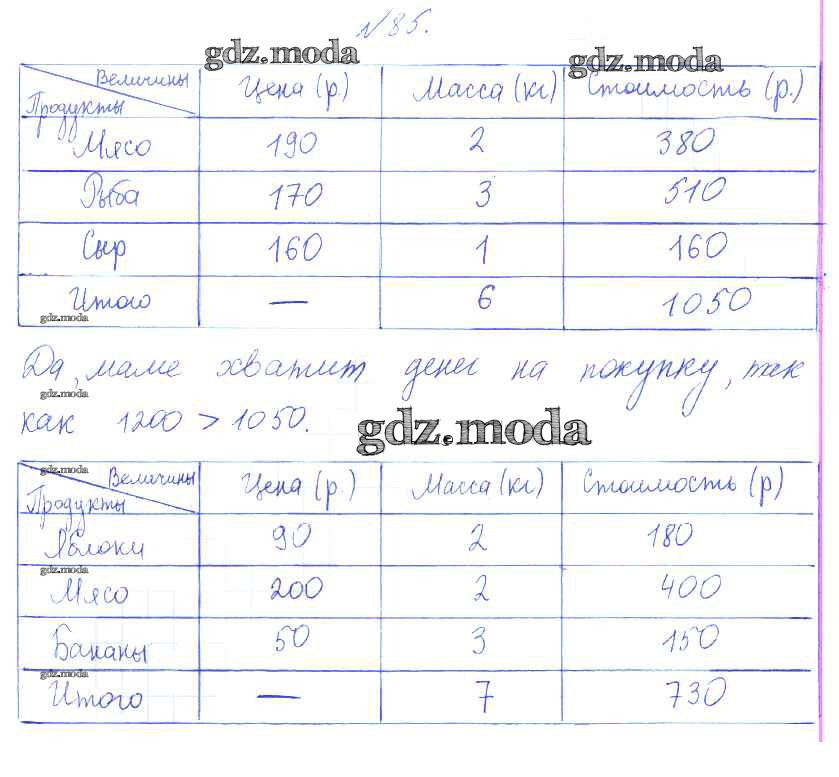 №85.
gdz.moda gdz.moda
Величины Продукты Цена (р) Масса (кг) Стоимость (р.)
Мясо 190 2 380
Рыба 170 3 510
Сыр 160 1 160
Итого — 6 1050
gdz.moda
Да, маме хватит денег на покупку, так
gdz.moda
как 1200 > 1050.
gdz.moda
gdz.moda
Величины Продукты Цена (р.) Масса (кг) Стоимость (р)
Яблоки 90 2 180
gdz.moda
Мясо 200 2 400
Бананы 50 3 150
gdz.moda
Итого — 7 730